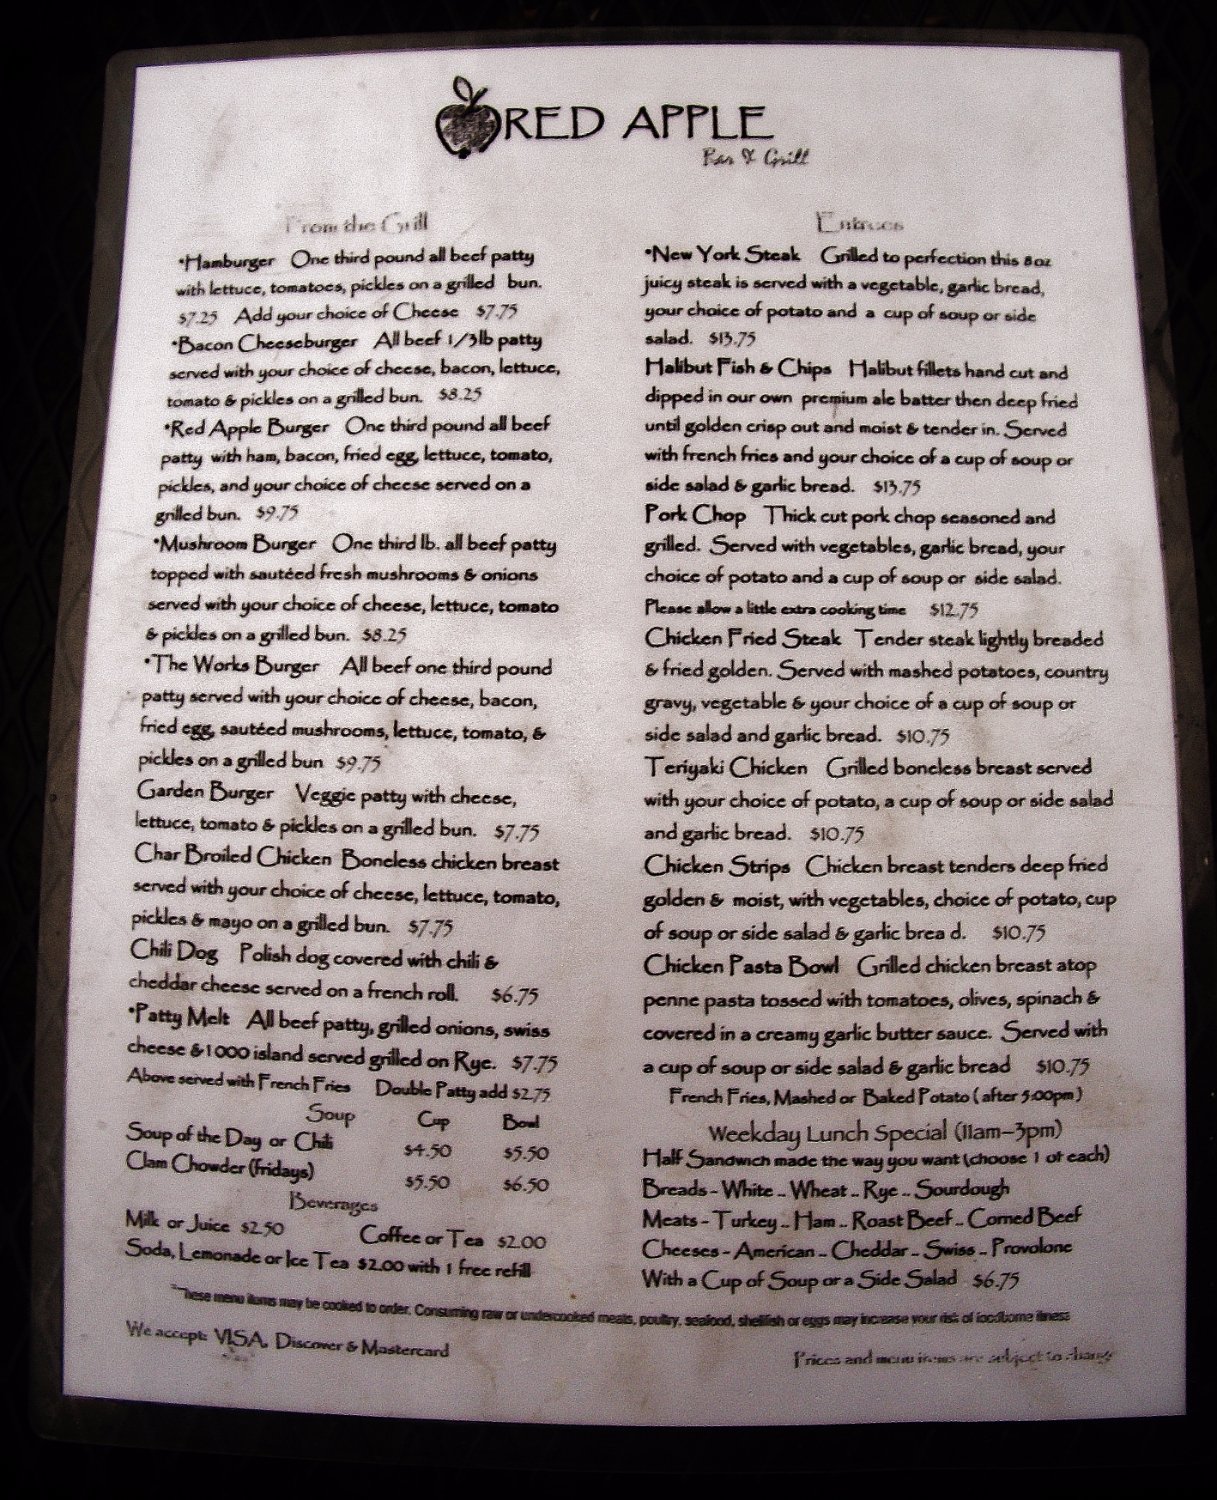 RED APPLE
Bar & Grill
From the Grill
*Hamburger One third pound all beef patty
with lettuce, tomatoes, pickles on a grilled bun.
$7.25 Add your choice of Cheese $7.75
*Bacon Cheeseburger All beef 1/3lb patty
served with your choice of cheese, bacon, lettuce,
tomato & pickles on a grilled bun. $8.25
*Red Apple Burger One third pound all beef
patty with ham, bacon, fried egg, lettuce, tomato,
pickles, and your choice of cheese served on a
grilled bun. $9.75
*Mushroom Burger One third lb. all beef patty
topped with sautéed fresh mushrooms & onions
served with your choice of cheese, lettuce, tomato
& pickles on a grilled bun. $8.25
*The Works Burger All beef one third pound
patty served with your choice of cheese, bacon,
fried egg, sautéed mushrooms, lettuce, tomato, &
pickles on a grilled bun $9.75
Garden Burger Veggie patty with cheese,
lettuce, tomato & pickles on a grilled bun. $7.75
Char Broiled Chicken Boneless chicken breast
served with your choice of cheese, lettuce, tomato,
pickles & mayo on a grilled bun. $7.75
Chili Dog Polish dog covered with chili &
cheddar cheese served on a french roll. $6.75
*Patty Melt All beef patty, grilled onions, swiss
cheese &1000 island served grilled on Rye. $7.75
Above served with French Fries Double Patty add $2.75
Soup Cup Bowl
Soup of the Day or Chili $4.50 $5.50
Clam Chowder (fridays) $5.50 $6.50
Beverages
Milk or Juice $2.50 Coffee or Tea $2.00
Soda, Lemonade or Ice Tea $2.00 with 1 free refill
Entrees
*New York Steak Grilled to perfection this 8oz
juicy steak is served with a vegetable, garlic bread,
your choice of potato and a cup of soup or side
salad. $13.75
Halibut Fish & Chips Halibut fillets hand cut and
dipped in our own premium ale batter then deep fried
until golden crisp out and moist & tender in. Served
with french fries and your choice of a cup of soup or
side salad & garlic bread. $13.75
Pork Chop Thick cut pork chop seasoned and
grilled. Served with vegetables, garlic bread, your
choice of potato and a cup of soup or side salad.
Please allow a little extra cooking time $12.75
Chicken Fried Steak Tender steak lightly breaded
& fried golden. Served with mashed potatoes, country
gravy, vegetable & your choice of a cup of soup or
side salad and garlic bread. $10.75
Teriyaki Chicken Grilled boneless breast served
with your choice of potato, a cup of soup or side salad
and garlic bread. $10.75
Chicken Strips Chicken breast tenders deep fried
golden & moist, with vegetables, choice of potato, cup
of soup or side salad & garlic brea d. $10.75
Chicken Pasta Bowl Grilled chicken breast atop
penne pasta tossed with tomatoes, olives, spinach &
covered in a creamy garlic butter sauce. Served with
a cup of soup or side salad & garlic bread $10.75
French Fries, Mashed or Baked Potato ( after 5:00pm )
Weekday Lunch Special (11am-3pm)
Half Sandwich made the way you want (choose 1 of each)
Breads - White .. Wheat .. Rye .. Sourdough
Meats - Turkey .. Ham .. Roast Beef .. Corned Beef
Cheeses - American .. Cheddar .. Swiss .. Provolone
With a Cup of Soup or a Side Salad $6.75
*These menu items may be cooked to order. Consuming raw or undercooked meats, poultry, seafood, shellfish or eggs may increase your risk of foodborne illness
We accept: VISA, Discover & Mastercard
Prices and menu items are subject to change